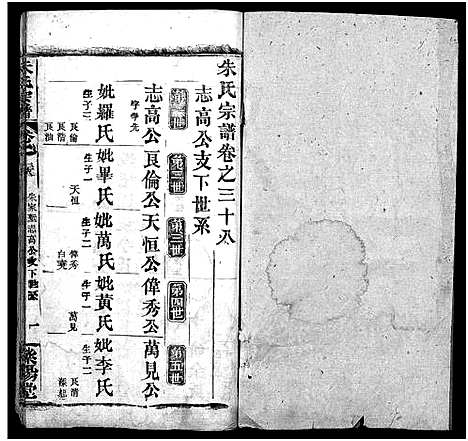 朱氏宗譜卷之三十八
志高公支下世系
第一世
第二世
第三世
第四世
第五世
志高公
良倫公
天恒公
偉秀公
萬見公
字學先
妣羅氏
妣畢氏
妣萬氏
妣黃氏
妣李氏
生子三
生子一
生子二
生子一
生子二
良倫
良浩
天恒
偉秀
萬見
朱氏宗譜
志高公支下世系
一